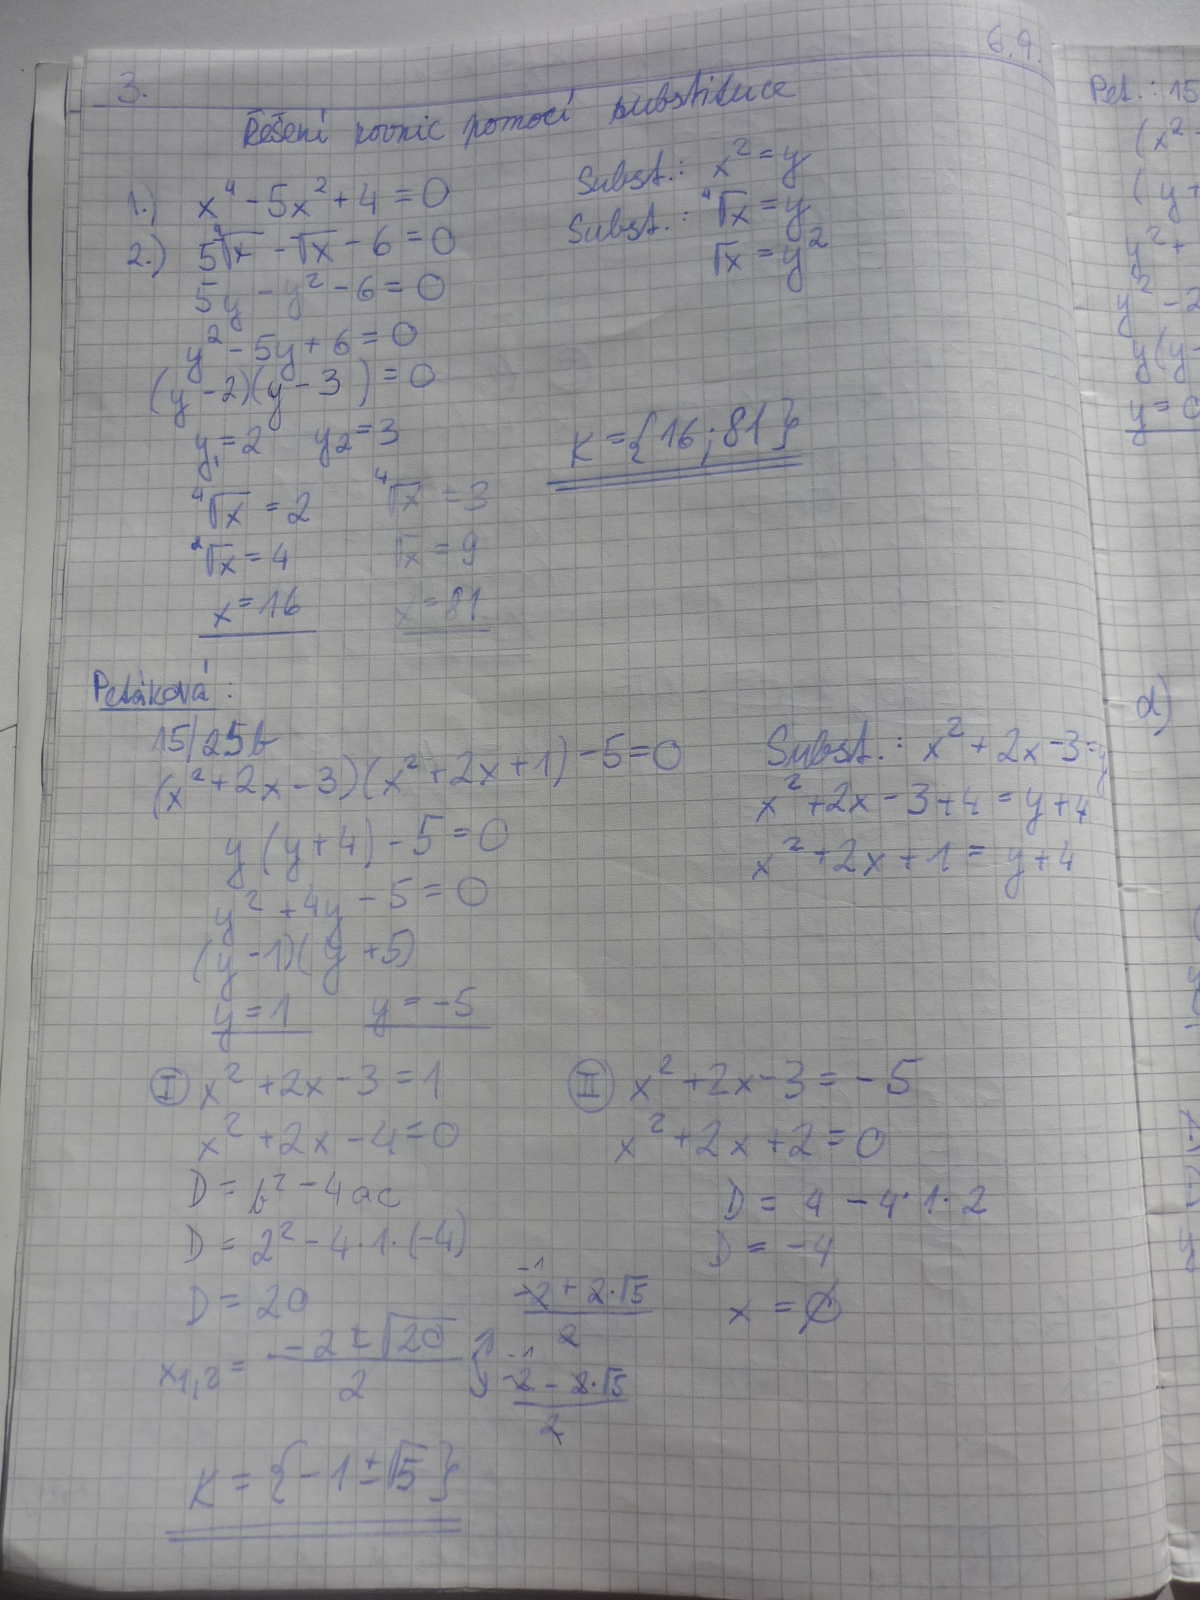 3.
6.9.
Řešení rovnic pomocí substituce
1.) x⁴ - 5x² + 4 = 0 Subst.: x² = y
2.) 5⁴√x - √x - 6 = 0 Subst.: ⁴√x = y
√x = y²
5y - y² - 6 = 0
y² - 5y + 6 = 0
(y - 2)(y - 3) = 0
y₁ = 2 y₂ = 3
K = {16; 81}
⁴√x = 2 ⁴√x = 3
²√x = 4 √x = 9
x = 16 x = 81
Petáková:
15/25b
(x² + 2x - 3)(x² + 2x + 1) - 5 = 0 Subst.: x² + 2x - 3 = y
x² + 2x - 3 + 4 = y + 4
y(y + 4) - 5 = 0 x² + 2x + 1 = y + 4
y² + 4y - 5 = 0
(y - 1)(y + 5)
y = 1 y = -5
Ⓘ x² + 2x - 3 = 1
x² + 2x - 4 = 0
D = b² - 4ac
D = 2² - 4·1·(-4)
D = 20
x₁,₂ = (-2 ± √20)/2
-1
-2 + 2·√5
2
-1
-2 - 2·√5
2
Ⓘ︎Ⓘ x² + 2x - 3 = -5
x² + 2x + 2 = 0
D = 4 - 4·1·2
D = -4
x = ∅
K = {-1 ± √5}
Pet.: 15
(x² -
(y +
y² +
y² - 2
y(y -
y = 0
d)
y